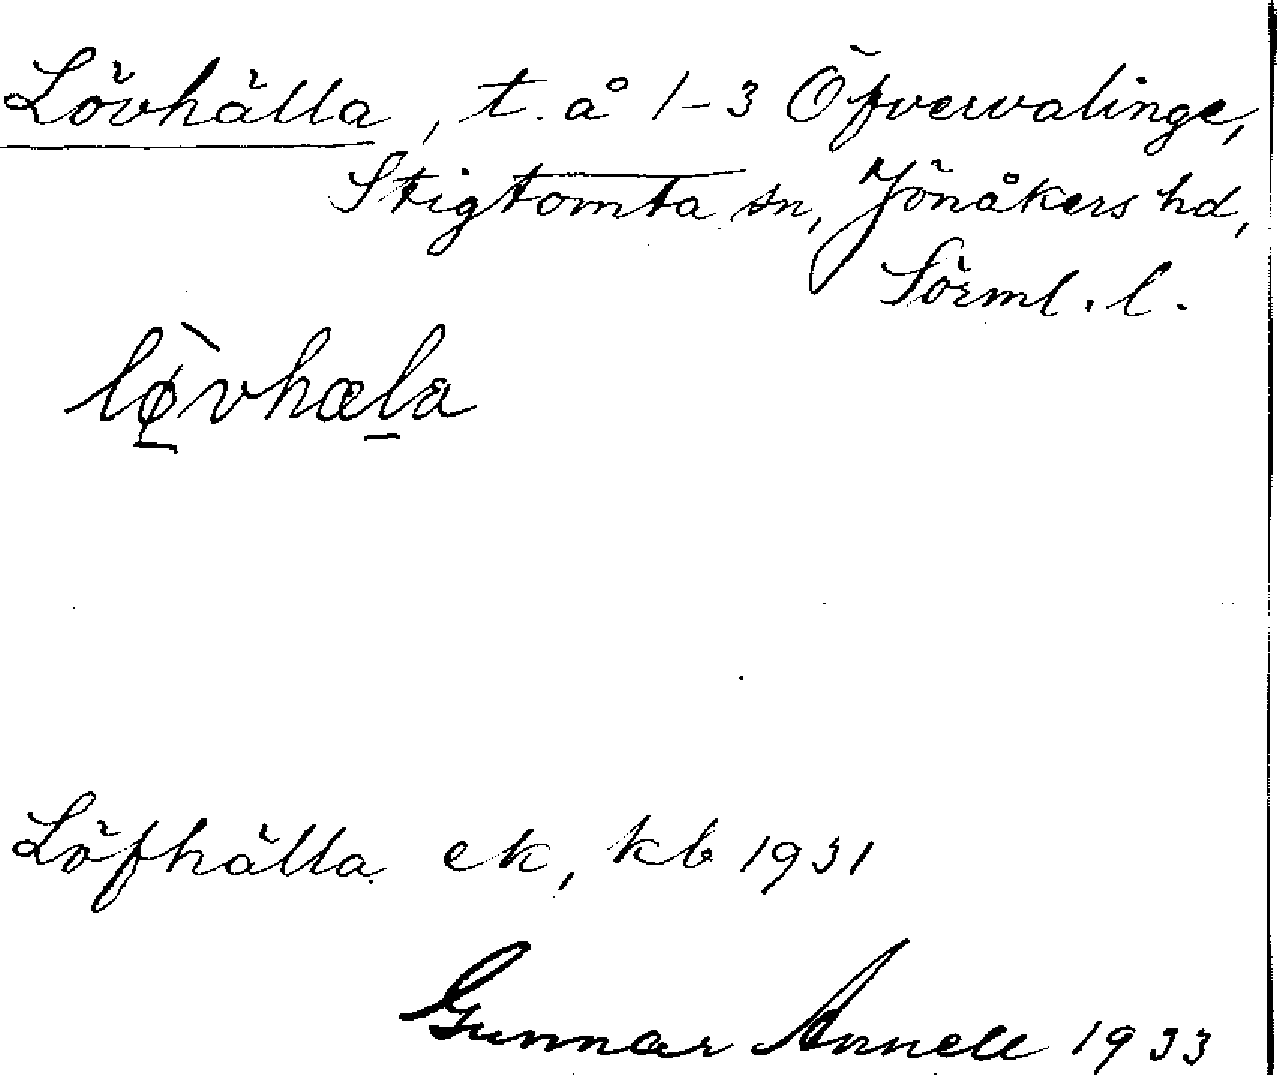 Lövhälla, t. å 1-3 Öfvervalinge,
Stigtomta sn, Jönåkers hd,
Sörml. l.
lø̀vhæla
Löfhälla ek, kb 1931
Gunnar Annell 1933